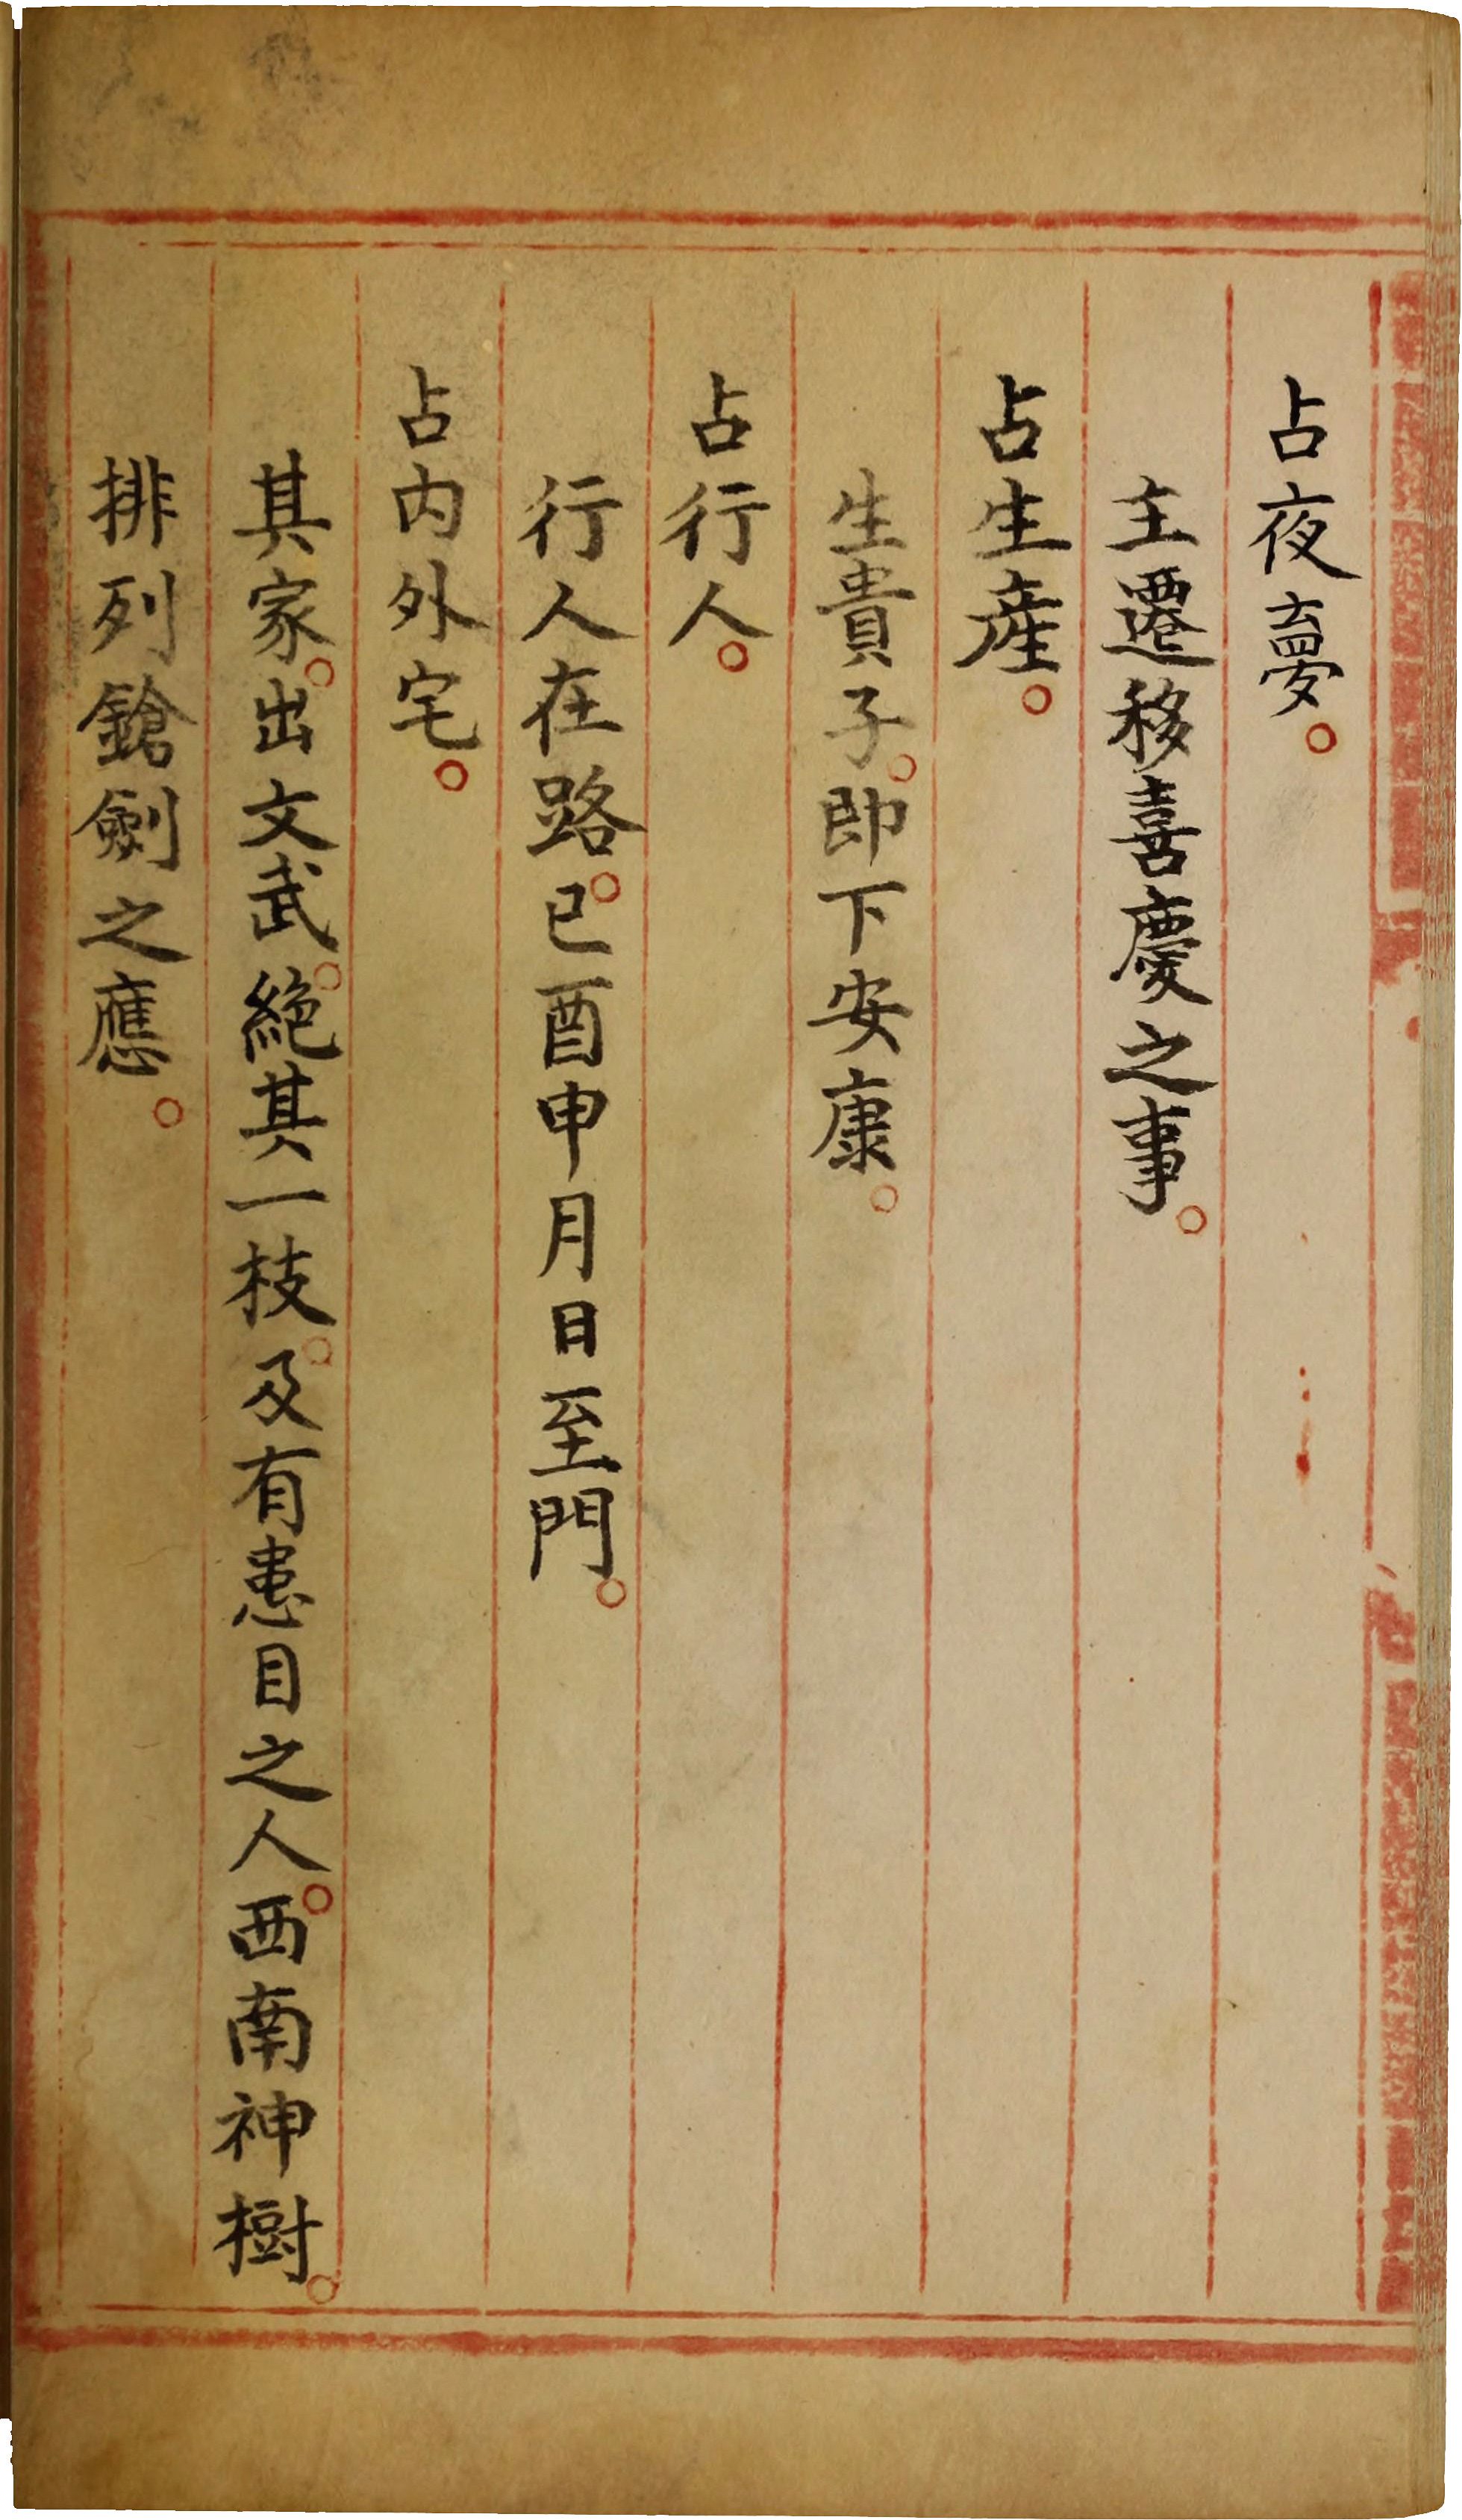 占夜夢。
主遷移喜慶之事。
占生產。
生貴子。即下安康。
占行人。
行人在路。已酉申月日至門。
占内外宅。
其家。出文武。絕其一枝。及有患目之人。西南神樹。
排列鎗劍之應。